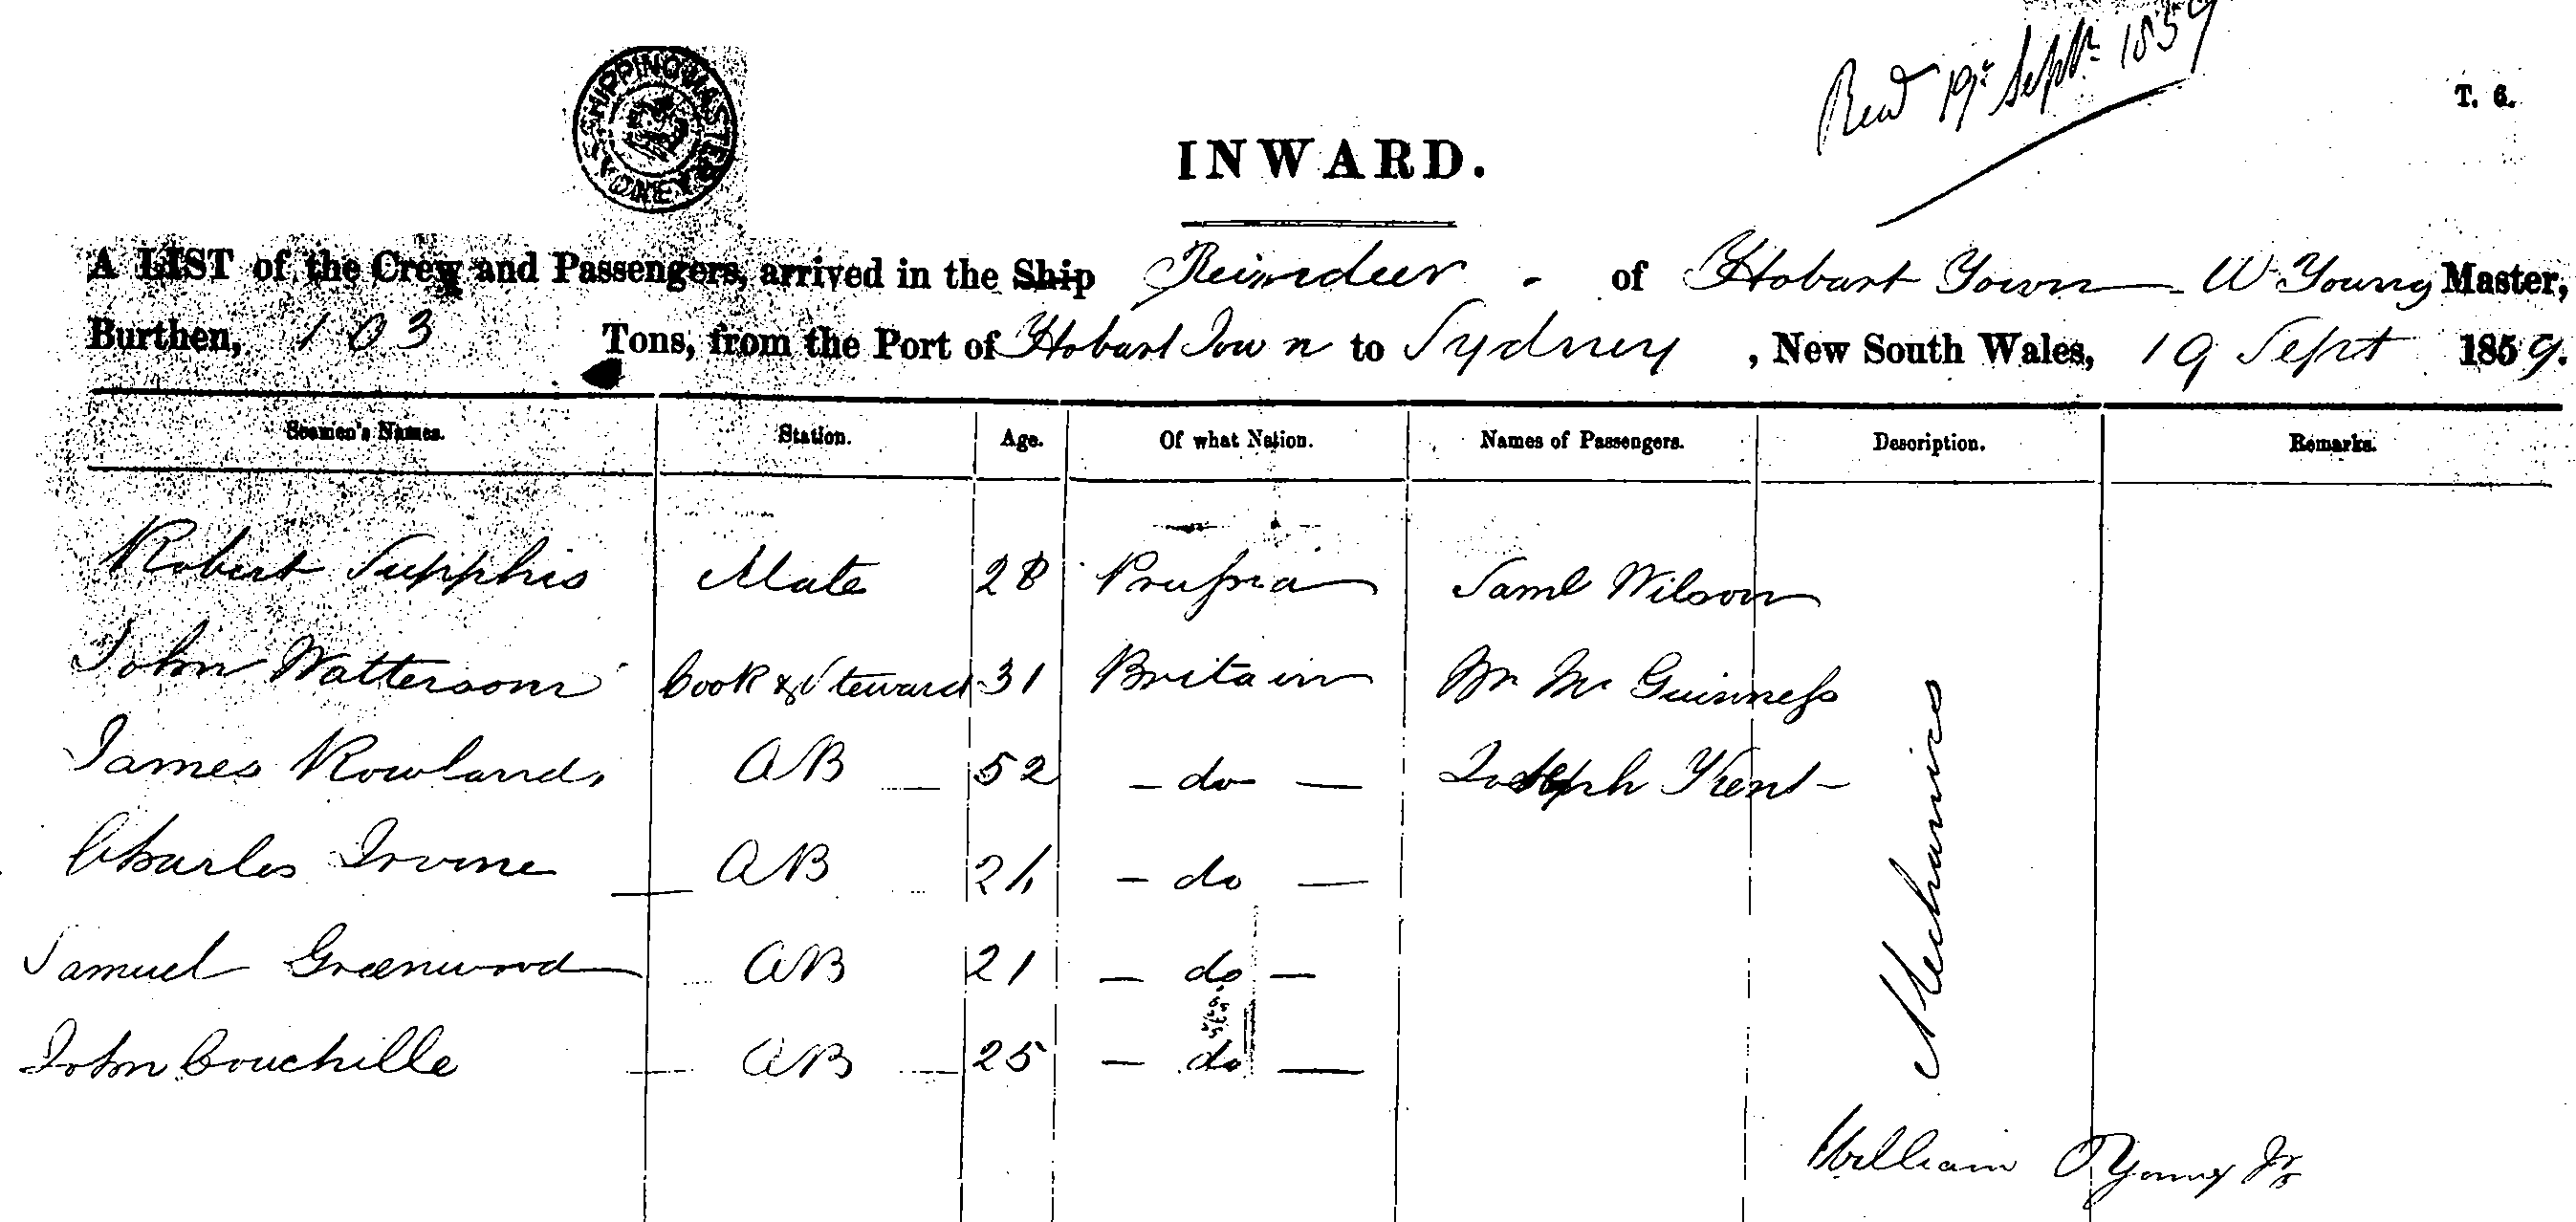 SHIPPING MASTER SYDNEY
Recd 19th Septr 1859
T. 6.
INWARD.
A LIST of the Crew and Passengers, arrived in the Ship Reindeer - of Hobart Town W Young Master,
Burthen, 103 Tons, from the Port of Hobart Town to Sydney, New South Wales, 19 Sept 1859.
Seamen's Names. Station. Age. Of what Nation. Names of Passengers. Description. Remarks.
Robert Mate 28 Prussia Saml Wilson
John Watterson Cook & Steward 31 Britain Mr Mc Guinness
James Rowlands AB 52 - do - Joseph Kent -
Charles Irvine AB - do -
Samuel Greenwood AB 21 - do -
John AB 25 - do -
Mechanics
William Young Jr